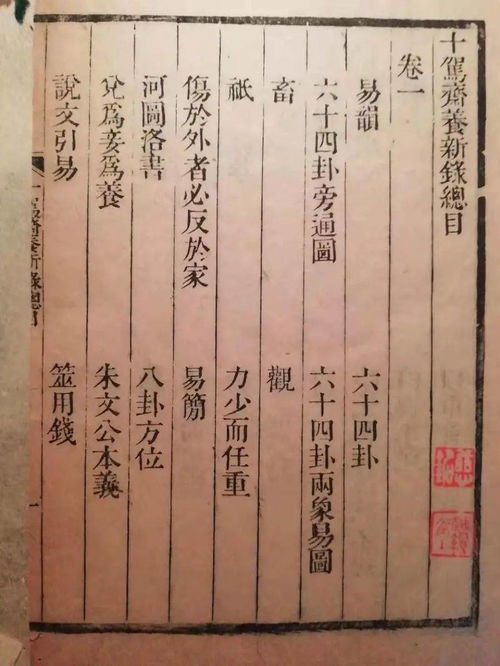 十駕齋養新錄總目
卷一
易韻
六十四卦
六十四卦旁通圖
六十四卦兩象易圖
畜
觀
祇
力少而任重
傷於外者必反於家
易簡
河圖洛書
八卦方位
兌爲妾爲養
朱文公本義
說文引易
筮用錢
十駕齋養新錄總目
一